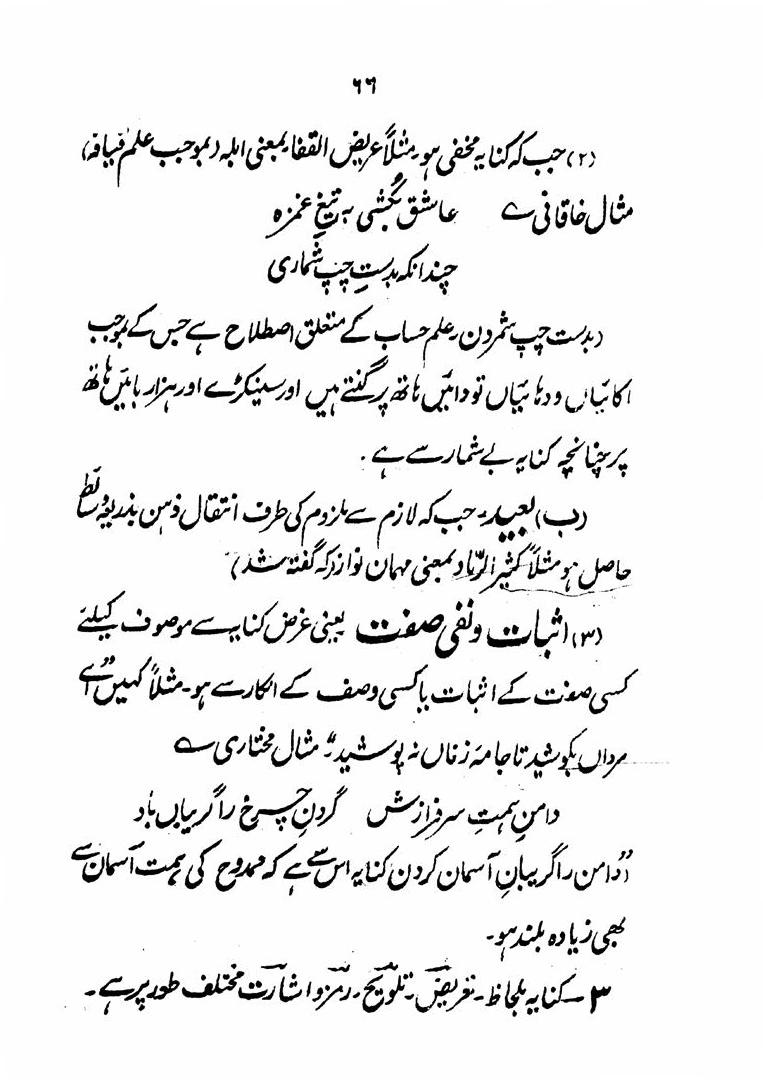 ۶۶
(۲) جب کہ کنایہ مخفی ہو۔ مثلاً عریض القفا بمعنی ابلہ (بموجب علم قیافہ)
مثال خاقانی ؎ عاشق بُکشی بہ تیغِ غمزہ
چندانکہ بدستِ چپ شماری
(بدست چپ شمردن علم حساب کے متعلق اصطلاح ہے جس کے بموجب
اکائیاں و دہائیاں تو دائیں ہاتھ پر گنتے ہیں اور سینکڑے اور ہزار بائیں ہاتھ
پر چنانچہ کنایہ بے شمار سے ہے۔
(ب) بعید۔ جب کہ لازم سے ملزوم کی طرف انتقال ذہن بذریعہ وسائط
حاصل ہو مثلاً کثیر الرّماد بمعنی مہمان نواز (کہ گفتہ شد)
(۳) اثبات و نفی صفت یعنی غرض کنایہ سے موصوف کیلئے
کسی صفت کے اثبات یا کسی وصف کے انکار سے ہو۔ مثلاً کہیں "اے
مرداں بکوشید تا جامہ زناں نہ پوشید" مثال مختاری ؎
دامنِ ہمتِ سرفرازش گردنِ چرخ را گریباں باد
"دامن را گریبانِ آسمان کردن کنایہ اس سے ہے کہ ممدوح کی ہمت آسمان سے
بھی زیادہ بلند ہو۔
۳ـ کنایہ بلحاظ۔ تعریض۔ تلویح۔ رمز و اشارت مختلف طور پر ہے۔